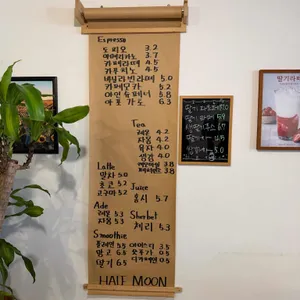 Espresso
도피오 3.2
아메리카노 3.7
카페라떼 4.5
카푸치노 4.5
바닐라빈라떼 5.0
카페모카 5.2
아인슈페너 5.8
아포가토 6.3
Tea
레몬 4.2
자몽 4.2
유자 4.0
쌍화 4.0
페퍼민트 3.8
Latte
말차 5.0
초코 5.2
고구마 5.2
Juice
홍시 5.7
Ade
레몬 5.3
자몽 5.3
Sherbet
체리 5.3
Smoothie
플레인 5.5
망고 6.5
딸기 6.5
아이스티 3.5
디카페인 0.5
HALF MOON